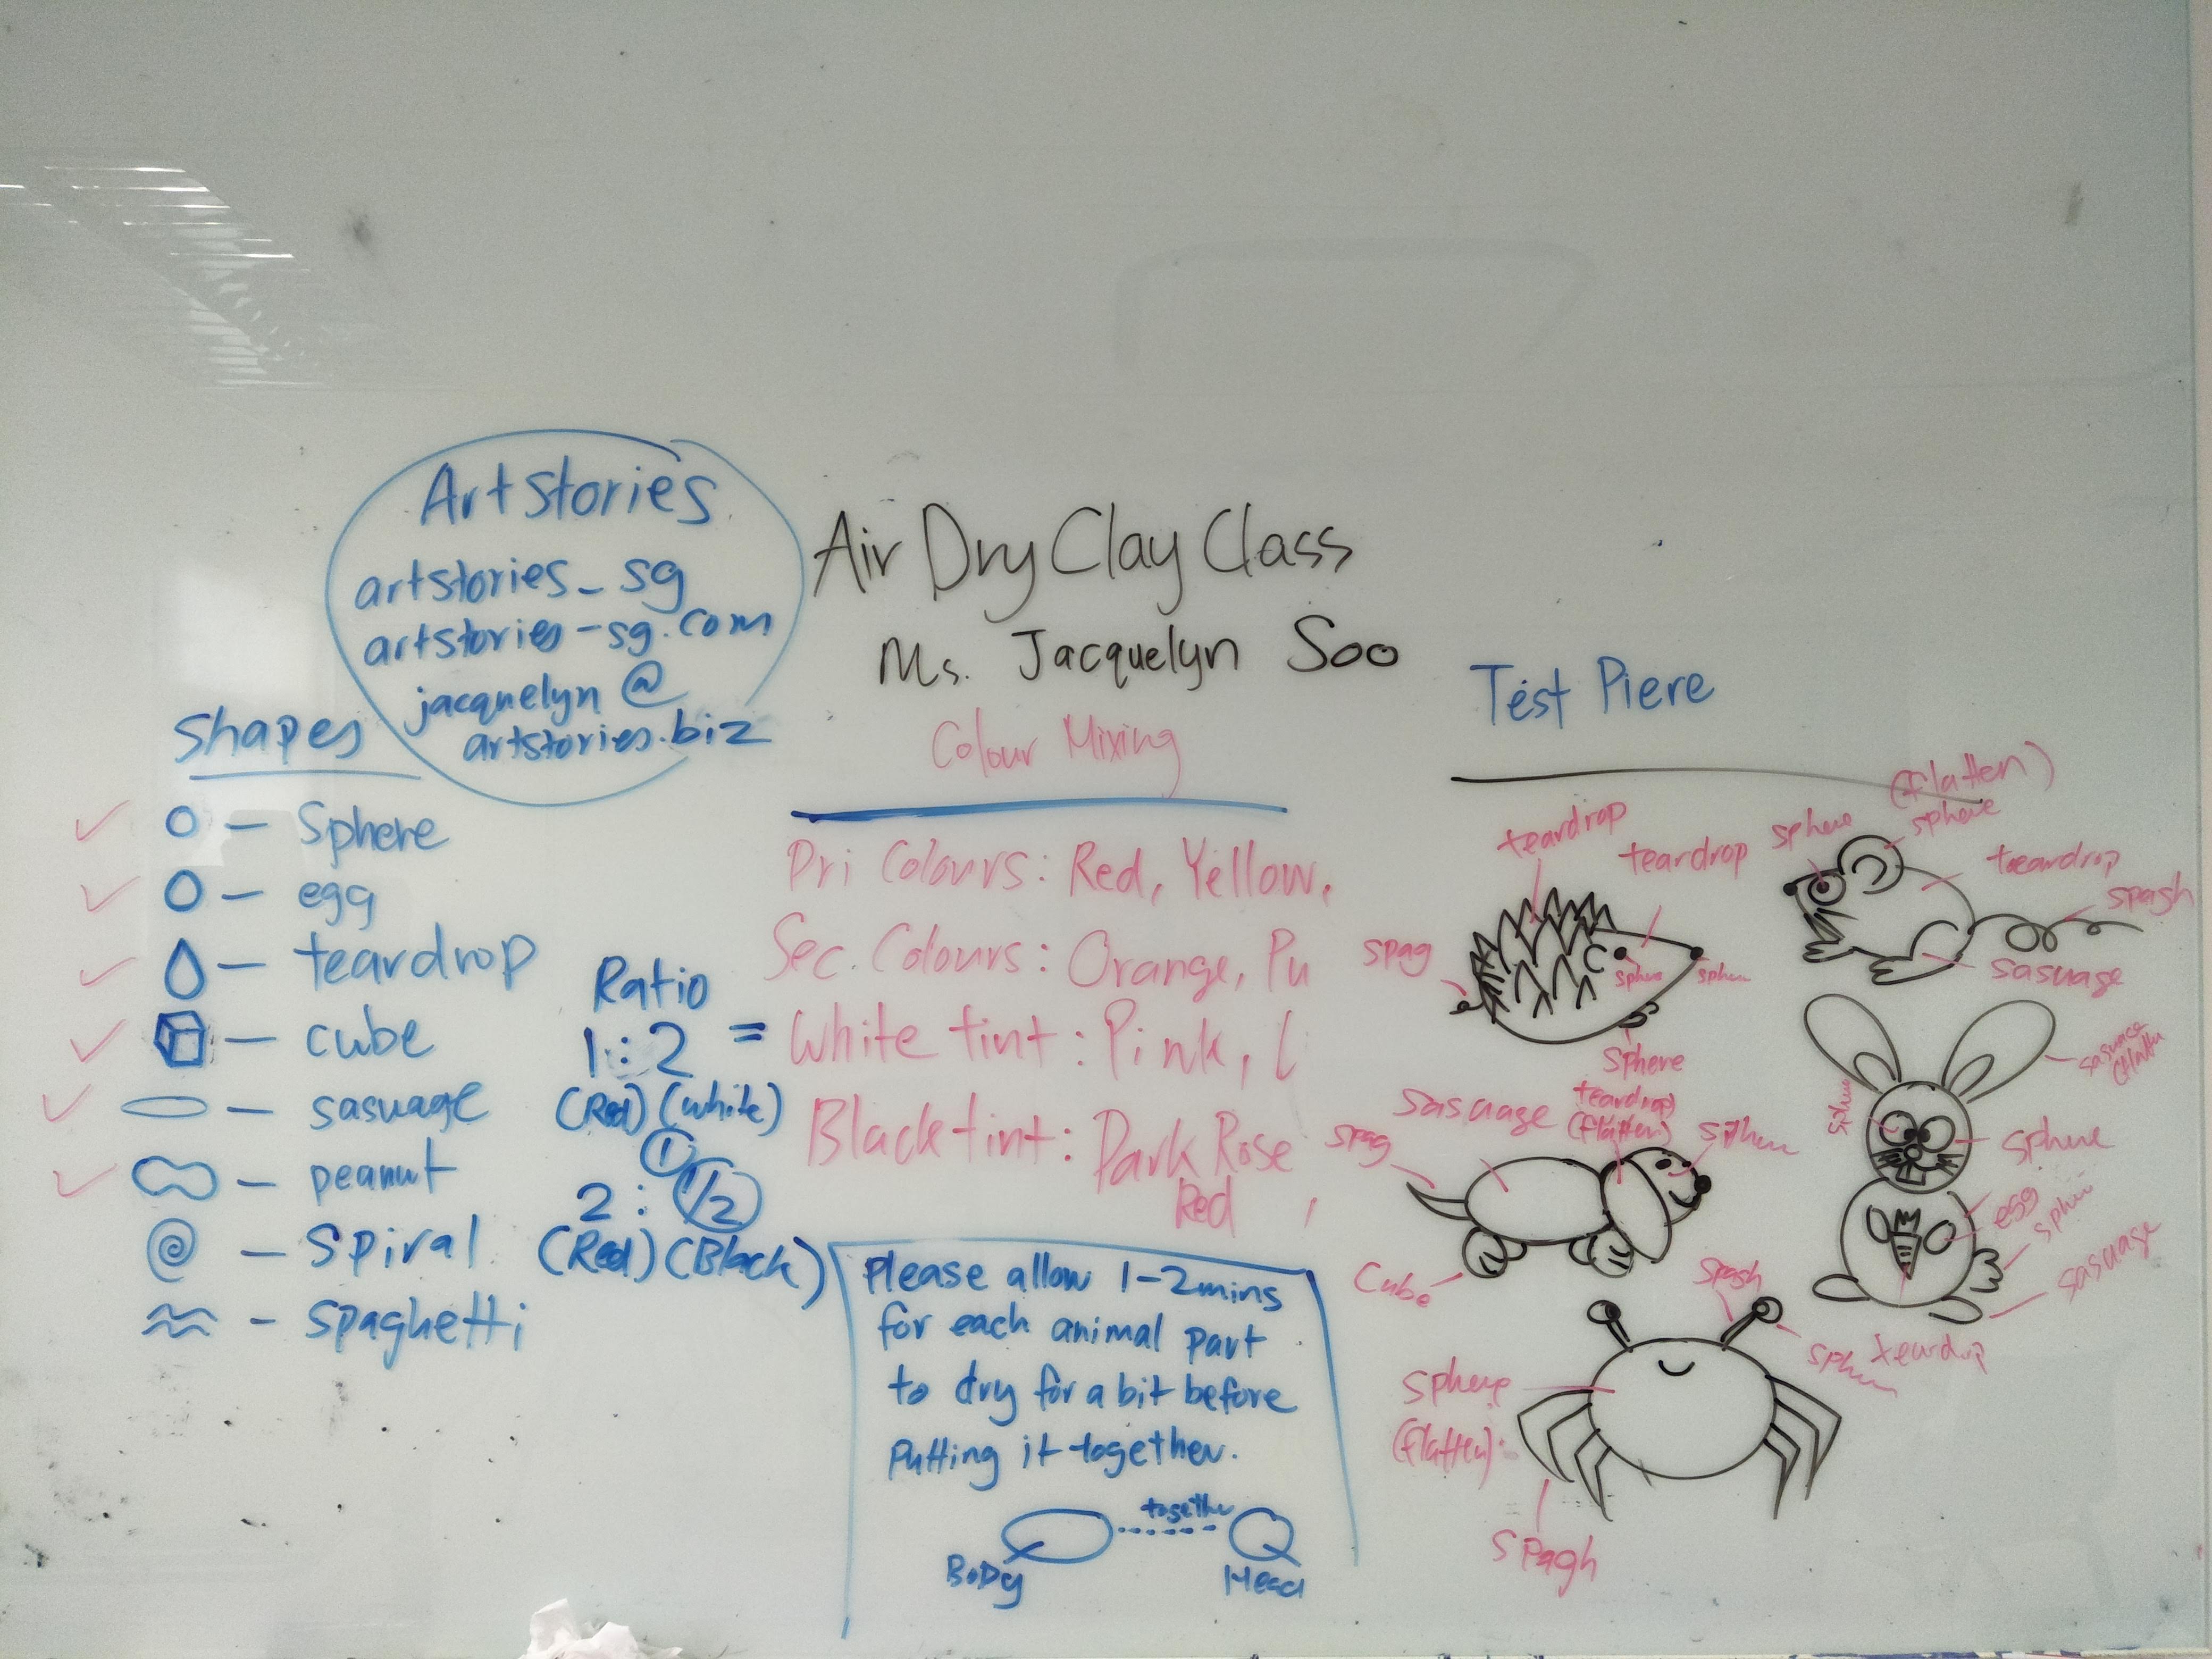 Artstories
artstories_sg
artstories-sg.com
jacquelyn@
artstories.biz
Air Dry Clay Class
Ms. Jacquelyn Soo
Shapes
sphere
egg
teardrop
cube
sasuage
peanut
spiral
spaghetti
Ratio
1:2 =
(Red) (White)
1
2 : 1/2
(Red) (Black)
Colour Mixing
Pri Colours: Red, Yellow,
Sec. Colours: Orange, Pu
White tint: Pink, l
Black tint: Dark Rose
Red ,
Please allow 1-2mins
for each animal part
to dry for a bit before
Putting it together.
together
BoDy
Head
Test Piere
teardrop
teardrop
spag
sphere
sphere
sphere
(flatten)
sphere
sphere
teardrop
spagh
sasuage
sasuage
teardrop
(flatten)
spag
Cube
sphere
sphere
egg
sasuage
spagh
teardrop
sphere
(flatten)
spagh